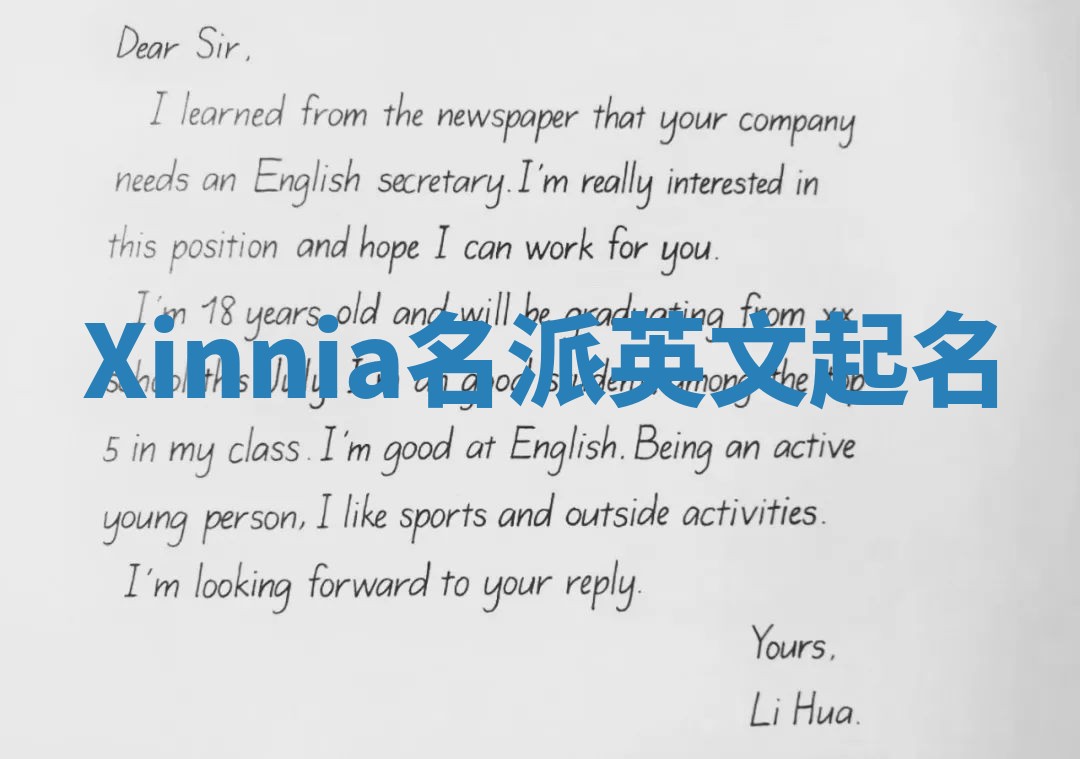 Dear Sir,
I learned from the newspaper that your company
needs an English secretary. I'm really interested in
this position and hope I can work for you.
I'm 18 years old and will be graduating from xx
Xinnia名派英文起名
school this July. I'm an good student, among the top
5 in my class. I'm good at English. Being an active
young person, I like sports and outside activities.
I'm looking forward to your reply.
Yours,
Li Hua.